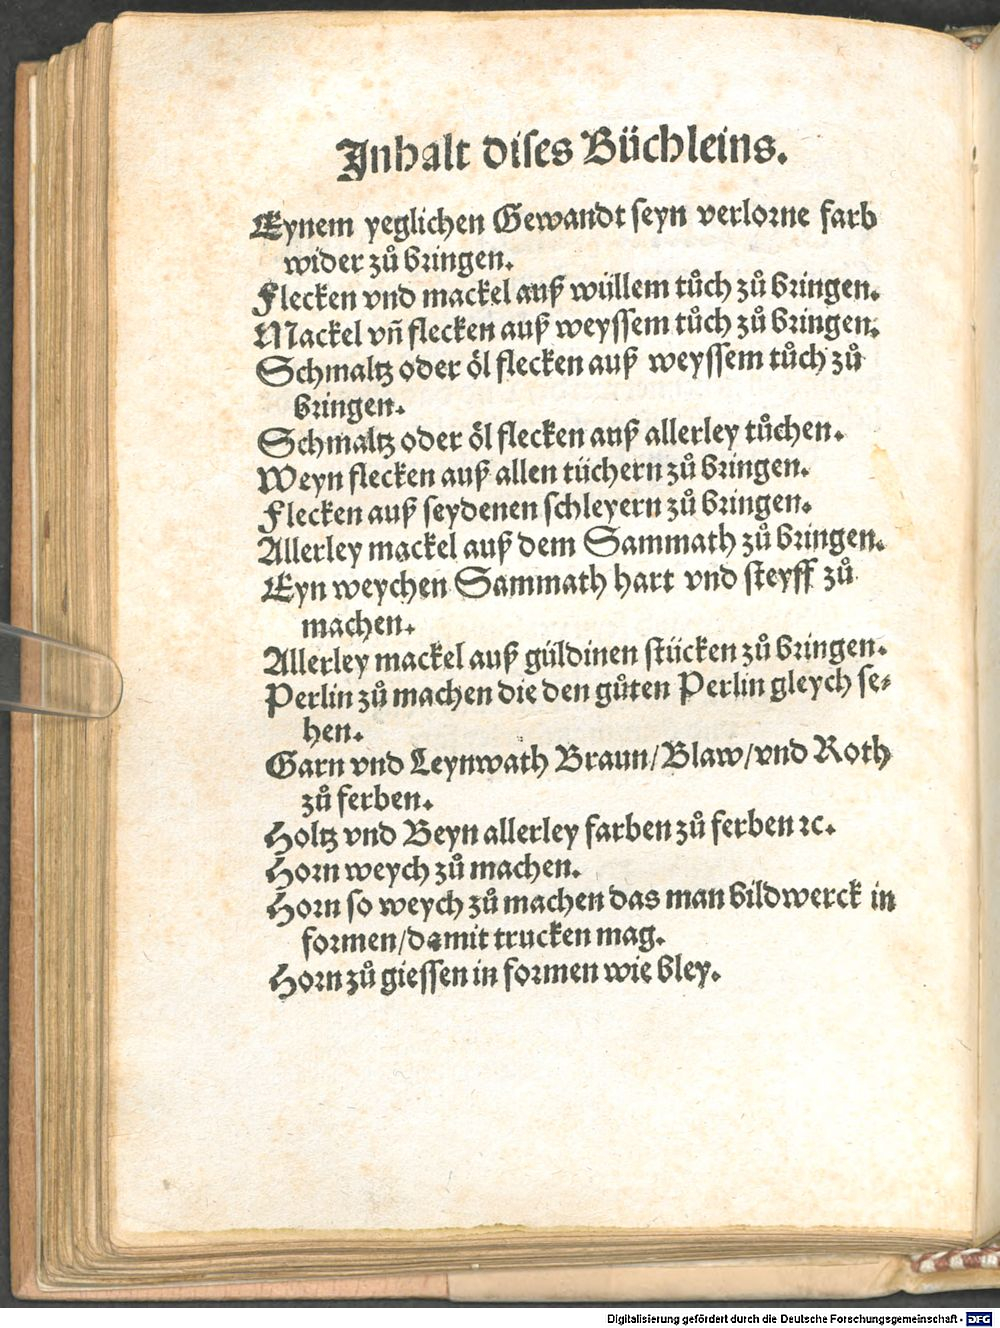 Inhalt diſes Büchleins.
Eynem yeglichen Gewandt ſeyn verlorne farb
wider zů bringen.
Flecken vnd mackel auß wüllem tůch zů bringen.
Mackel vñ flecken auß weyſſem tůch zů bringen.
Schmaltz oder öl flecken auß weyſſem tůch zů
bringen.
Schmaltz oder öl flecken auß allerley tůchen.
Weyn flecken auß allen tüchern zů bringen.
Flecken auß ſeydenen ſchleyern zů bringen.
Allerley mackel auß dem Sammath zů bringen.
Eyn weychen Sammath hart vnd ſteyff zů
machen.
Allerley mackel auß güldinen ſtücken zů bringen.
Perlin zů machen die den gůten Perlin gleych ſe⸗
hen.
Garn vnd Leynwath Braun/Blaw/vnd Roth
zů ferben.
Holtz vnd Beyn allerley farben zů ferben ꝛc.
Horn weych zů machen.
Horn ſo weych zů machen das man bildwerck in
formen/damit trucken mag.
Horn zů gieſſen in formen wie bley.
Digitalisierung gefördert durch die Deutsche Forschungsgemeinschaft - DFG